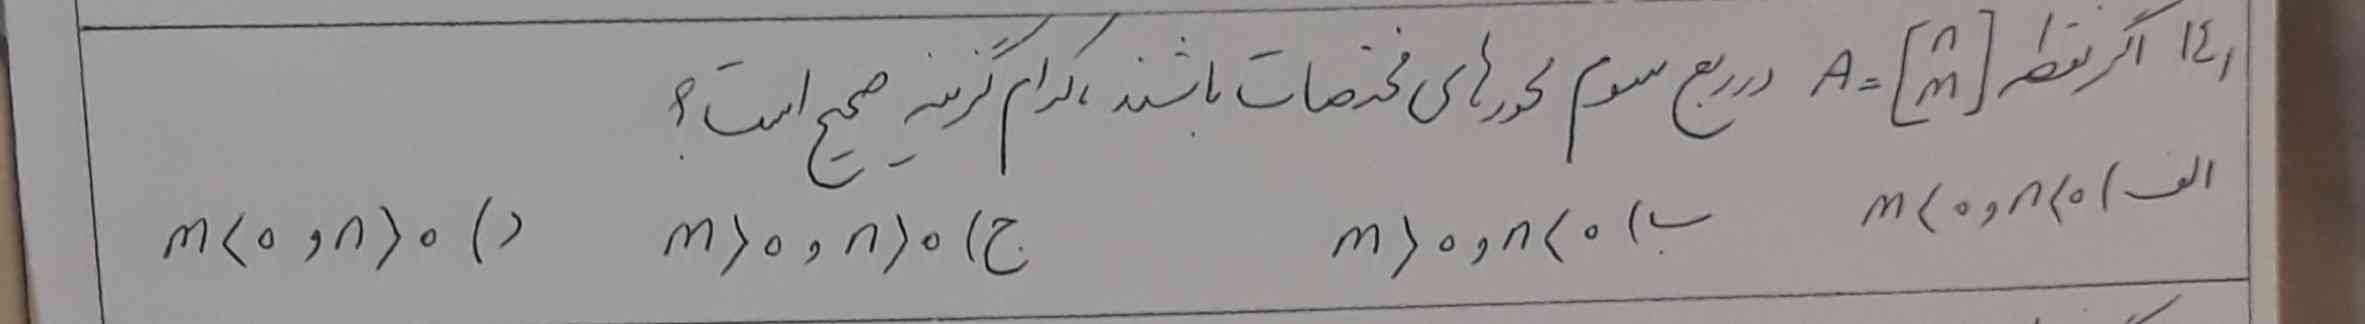 ۱۴, اگر نقطه A = [n m] در ربع سوم محورهای مختصات باشند، کدام گزینه صحیح است؟
الف) m < 0 , n < 0 ب) m > 0 , n < 0 ج) m > 0 , n > 0 د) m < 0 , n > 0